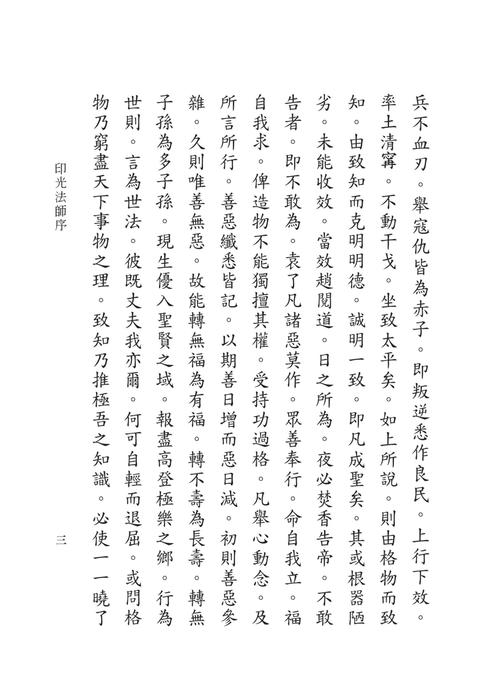 兵不血刃。舉寇仇皆為赤子。即叛逆悉作良民。上行下效。
率土清甯。不動干戈。坐致太平矣。如上所說。則由格物而致
知。由致知而克明明德。誠明一致。即凡成聖矣。其或根器陋
劣。未能收效。當效趙閱道。日之所為。夜必焚香告帝。不敢
告者。即不敢為。袁了凡諸惡莫作。眾善奉行。命自我立。福
自我求。俾造物不能獨擅其權。受持功過格。凡舉心動念。及
所言所行。善惡纖悉皆記。以期善日增而惡日減。初則善惡參
雜。久則唯善無惡。故能轉無福為有福。轉不壽為長壽。轉無
子孫為多子孫。現生優入聖賢之域。報盡高登極樂之鄉。行為
世則。言為世法。彼既丈夫我亦爾。何可自輕而退屈。或問格
物乃窮盡天下事物之理。致知乃推極吾之知識。必使一一曉了
印光法師序
三